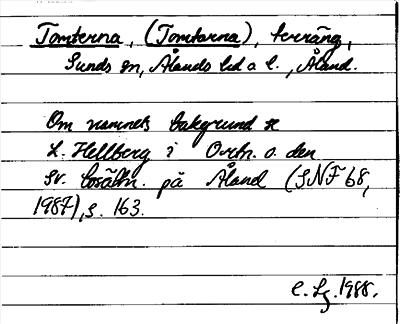 Tomterna, (Tomtarna), terräng,
Sunds sn, Ålands hd a l., Åland.
Om namnets bakgrund se
L. Hellberg i Ortn. o. den
sv. bosättn. på Åland (SNF 68,
1987), s. 163.
1988.